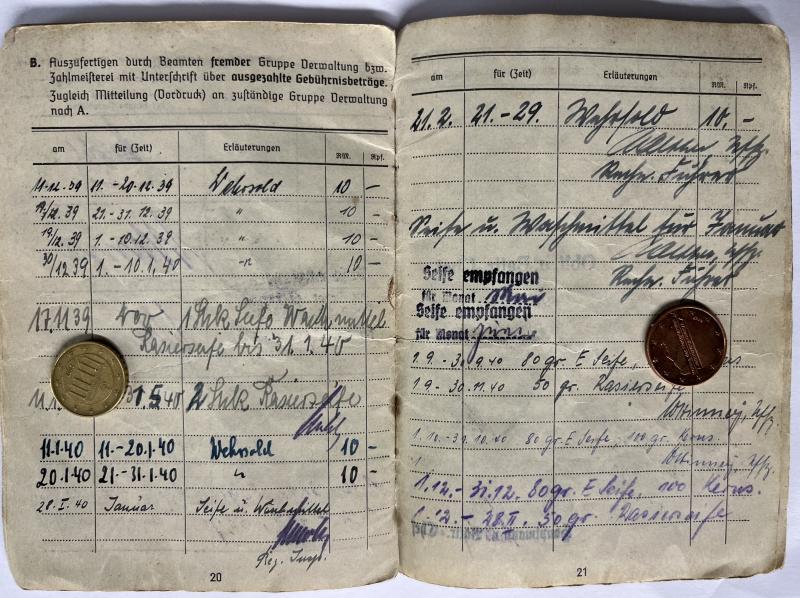 B. Auszufertigen durch Beamten fremder Gruppe Verwaltung bzw.
Zahlmeisterei mit Unterschrift über ausgezahlte Gebührnisbeträge.
Zugleich Mitteilung (Vordruck) an zuständige Gruppe Verwaltung
nach A.
am für (Zeit) Erläuterungen RM. Rpf.
11.12.39 11.-20.12.39 Wehrsold 10 -
19/12.39 21.-31.12.39 " 10 -
19/12.39 1.-10.12.39 " 10 -
30/12.39 1.-10.1.40 -"- 10 -
17.11.39 1 Stck Seife Waschmittel
Rasierseife bis 31.1.40
2 Stck Rasierseife
11.1.40 11.-20.1.40 Wehrsold 10 -
20.1.40 21.-31.1.40 " 10 -
28.I.40 Januar Seife u. Waschmittel
Reg. Insp.
20
am für (Zeit) Erläuterungen RM. Rpf.
21.2. 21.-29. Wehrsold 10.-
Uffz.
Rechn. Führer
Seife u. Waschmittel für Januar
Uffz.
Rechn. Führer
Seife empfangen
für Monat
Seife empfangen
für Monat
1.9.-30.9.40 80 gr. E Seife,
1.9-30.11.40 50 gr. Rasierseife
Uffz.
1.10.-31.10.40 80 gr. E Seife, 100 gr. Kerns.
Uffz.
1.12.-31.12. 80 gr. E Seife 100 Kerns.
-28.II. 50 gr. Rasierseife
21